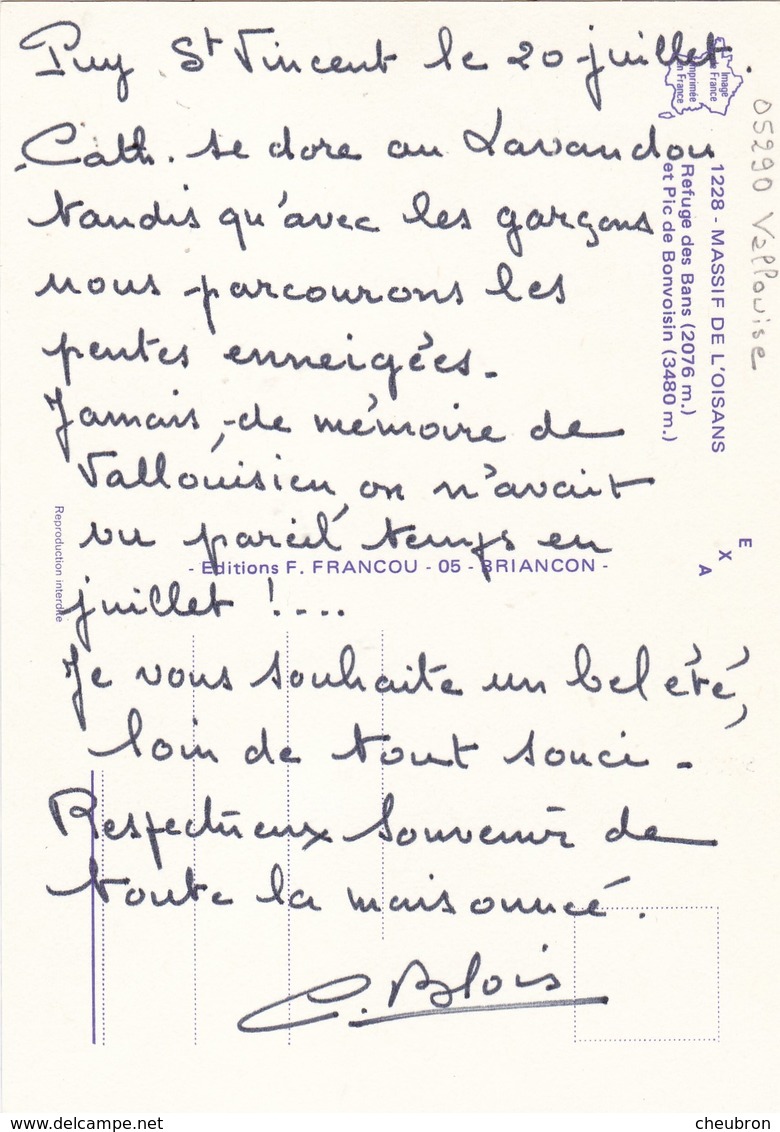 Puy St Vincent le 20 juillet.
Cath. se dore au Lavandou
tandis qu'avec les garçons
nous parcourons les
pentes enneigées -
Jamais, de mémoire de
Vallouisien, on n'avait
vu pareil temps en
juillet !....
Je vous souhaite un bel été,
loin de tout souci -
Respectueux souvenir de
toute la maisonnée.
C. Blois
Image de France
Imprimée en France
1228 - MASSIF DE L'OISANS
Refuge des Bans (2076 m.)
et Pic de Bonvoisin (3480 m.)
05290 Vallouise
EXA
- Editions F. FRANCOU - 05 - BRIANCON -
Reproduction interdite
www.delcampe.net
cheubron